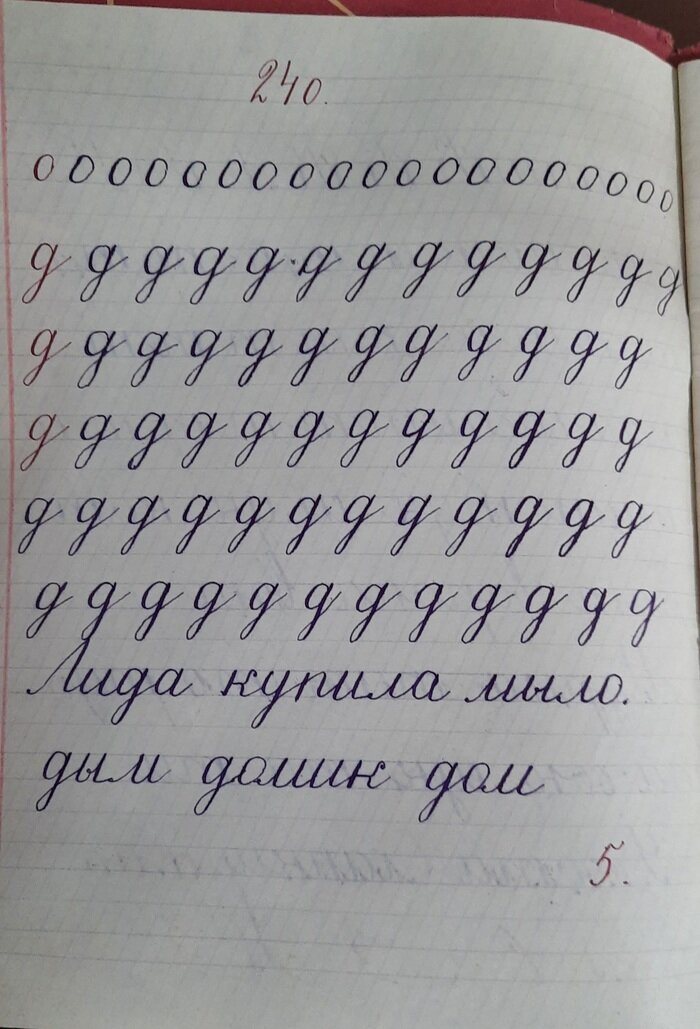 240.
о о о о о о о о о о о о о о о о о о о
д д д д д д д д д д д д д
д д д д д д д д д д д д
д д д д д д д д д д д д
д д д д д д д д д д д д
д д д д д д д д д д д д
Лида купила мыло.
дым домик дом
5.